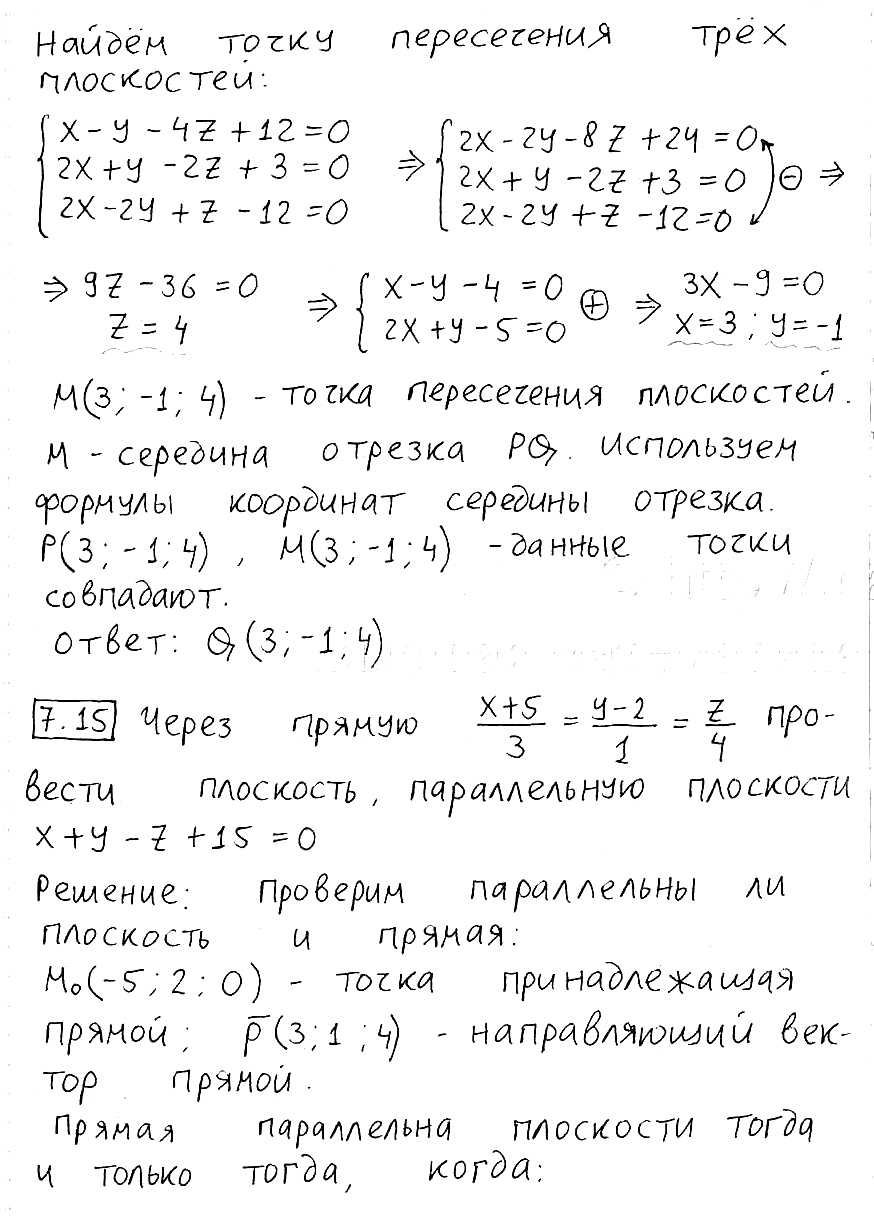 Найдём точку пересечения трёх
плоскостей:
{ x - y - 4z + 12 = 0 ⇒ { 2x - 2y - 8z + 24 = 0
2x + y - 2z + 3 = 0 2x + y - 2z + 3 = 0 ⊖ ⇒
2x - 2y + z - 12 = 0 2x - 2y + z - 12 = 0
⇒ 9z - 36 = 0 ⇒ { x - y - 4 = 0 ⊕ ⇒ 3x - 9 = 0
z = 4 2x + y - 5 = 0 x = 3; y = -1
M(3; -1; 4) - точка пересечения плоскостей.
M - середина отрезка PQ. Используем
формулы координат середины отрезка.
P(3; -1; 4), M(3; -1; 4) - данные точки
совпадают.
Ответ: Q(3; -1; 4)
7.15 Через прямую (x+5)/3 = (y-2)/1 = z/4 про-
вести плоскость, параллельную плоскости
x + y - z + 15 = 0
Решение: Проверим параллельны ли
плоскость и прямая:
M₀(-5; 2; 0) - точка принадлежащая
прямой; p̄(3; 1; 4) - направляющий век-
тор прямой.
Прямая параллельна плоскости тогда
и только тогда, когда: